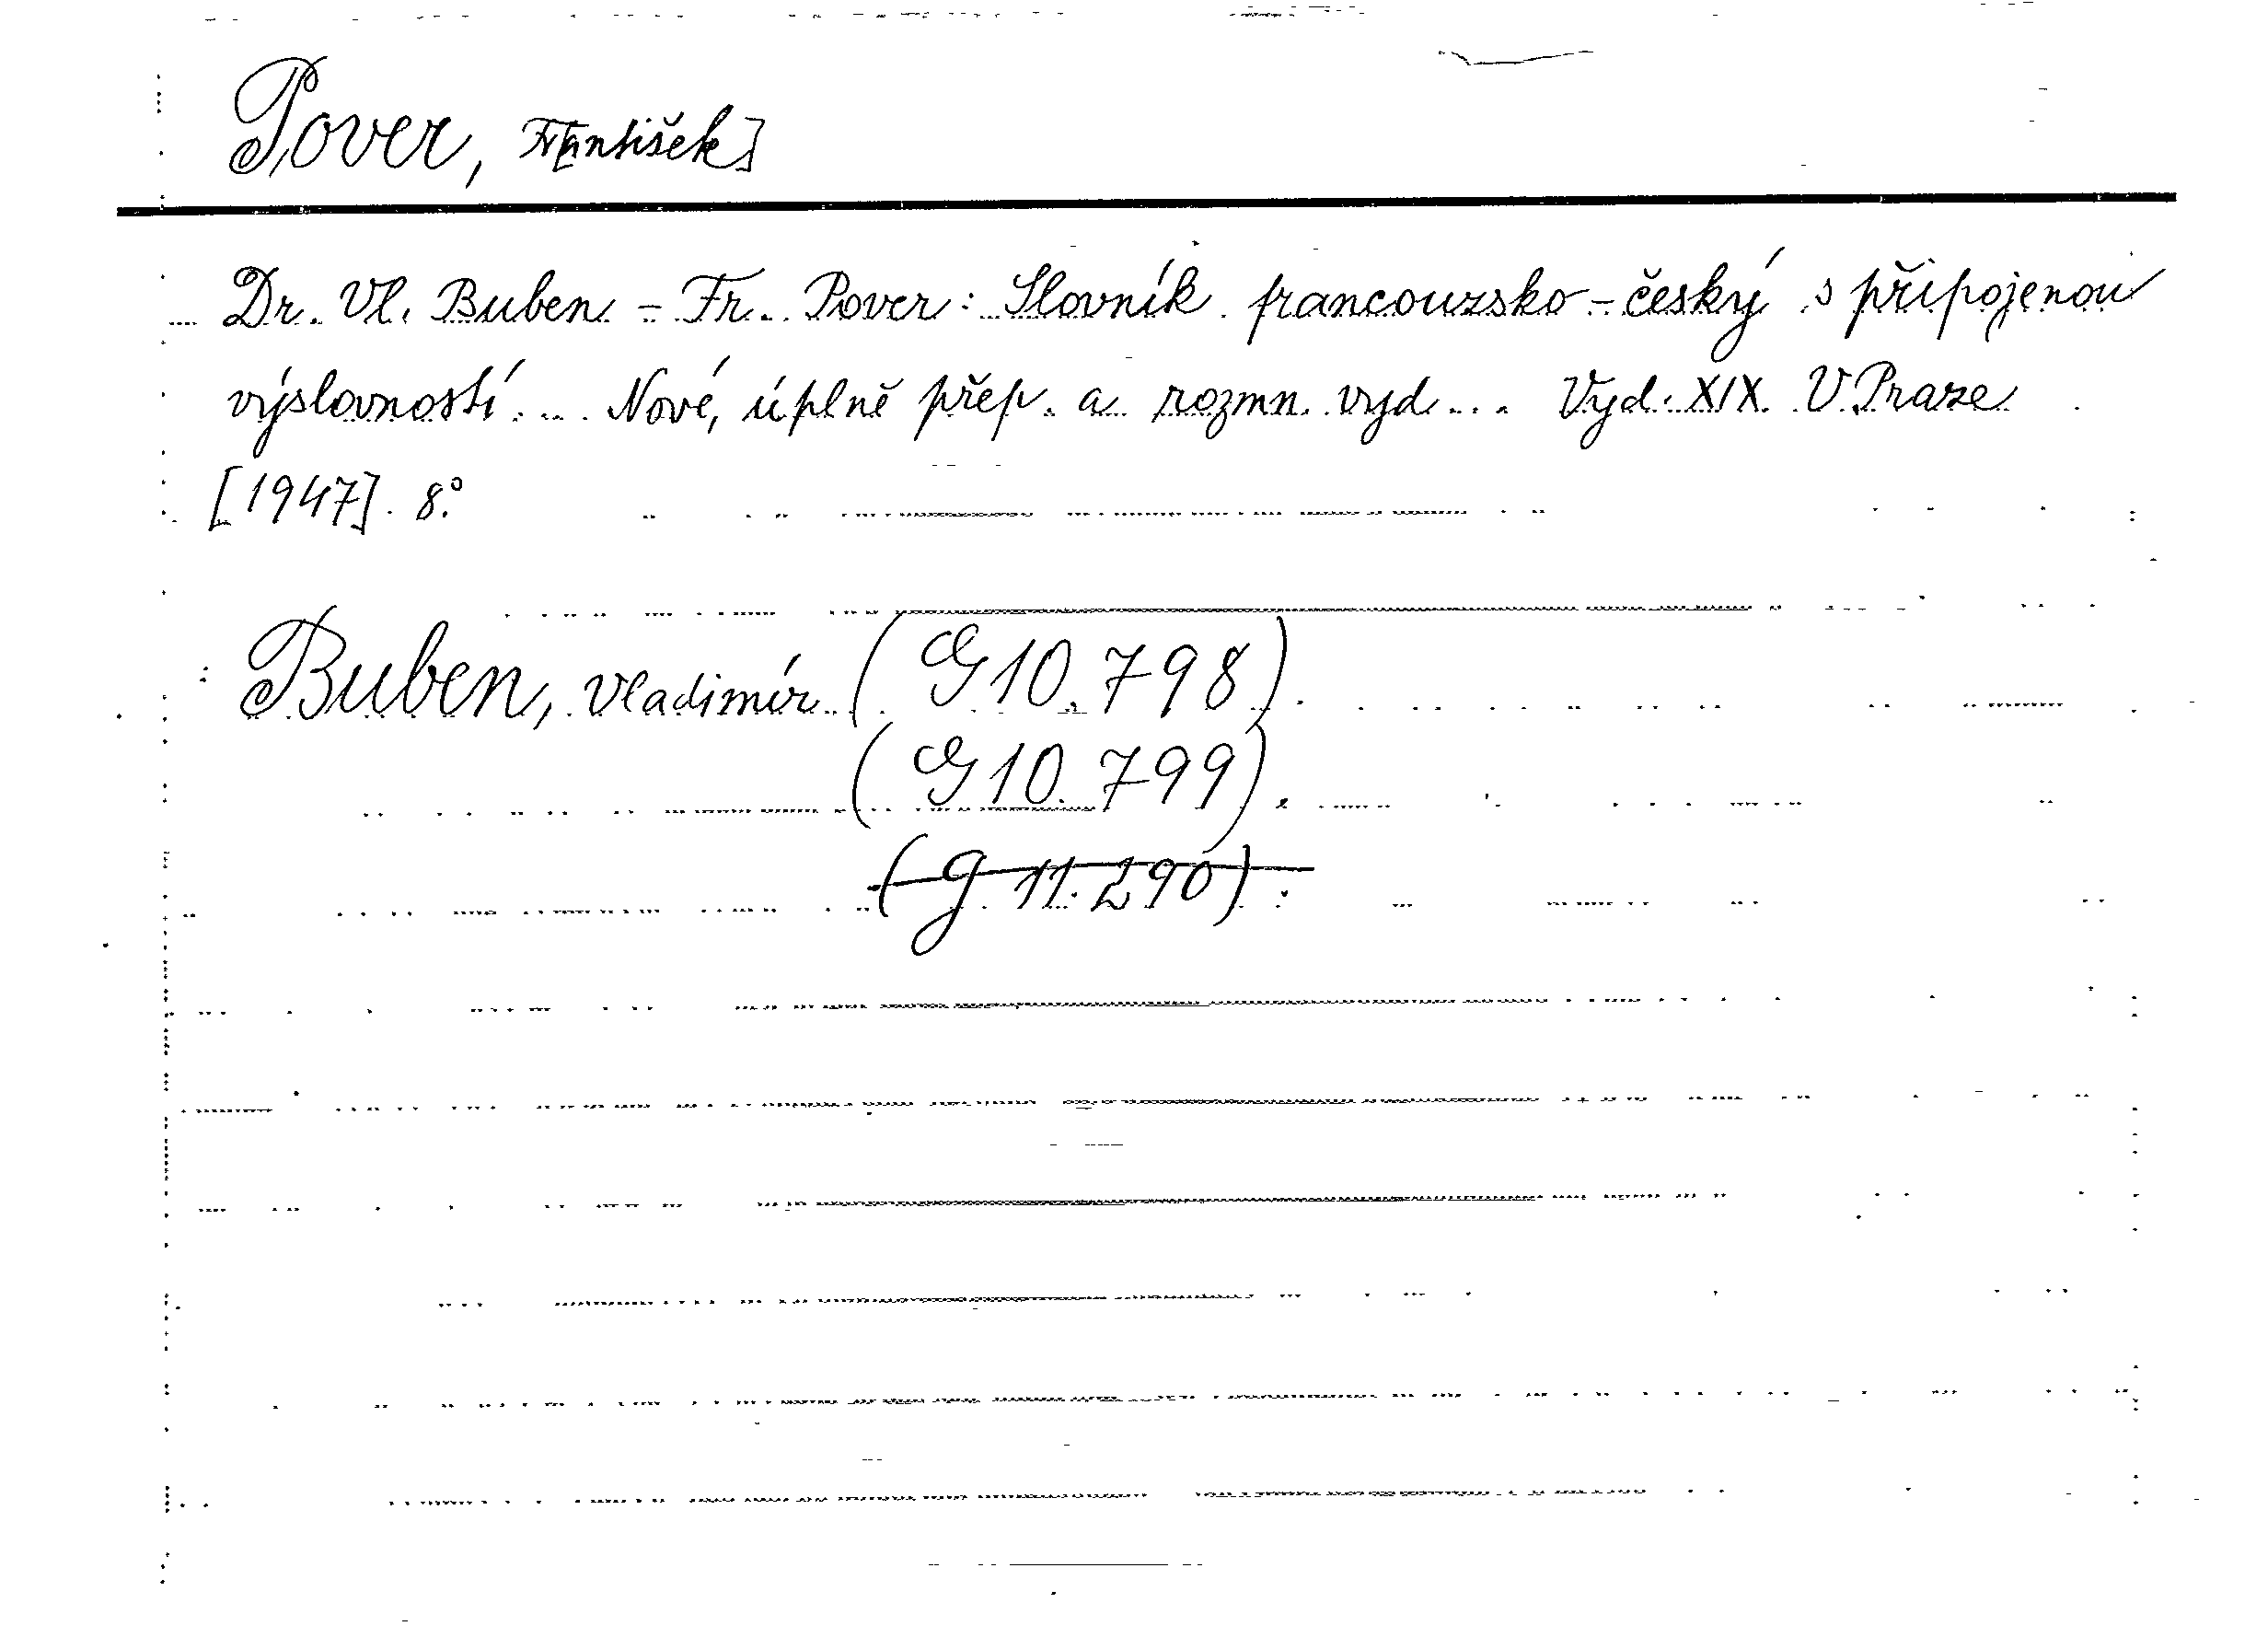 Pover, Fr[antišek]
Dr. Vl. Buben - Fr. Pover: Slovník francouzsko-český s připojenou
výslovností ... Nové, úplně přep. a rozmn. vyd... Vyd. XIX. V Praze
[1947]. 8°.
Buben, Vladimír (G 10.798).
(G 10.799).
(g 11.290).